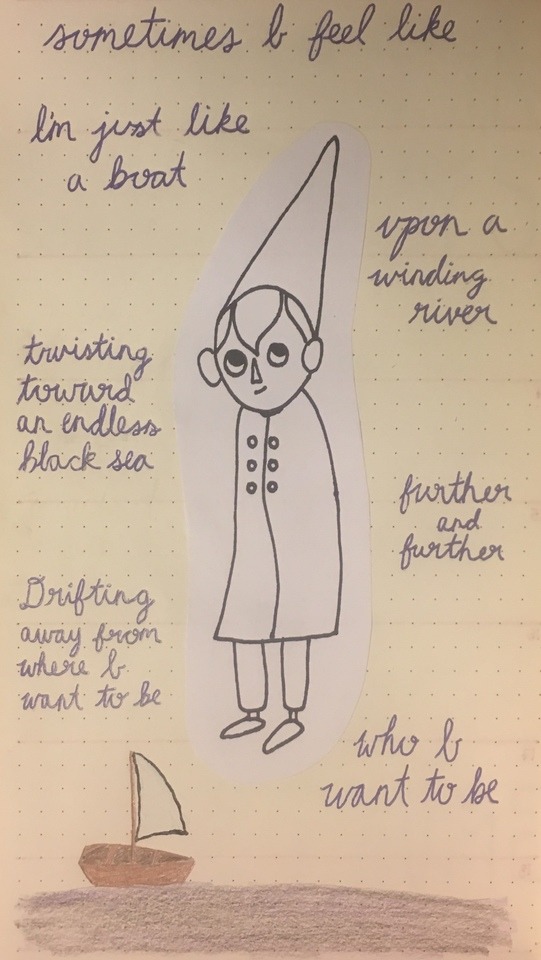 sometimes I feel like
I'm just like
a boat
upon a
winding
river
twisting
toward
an endless
black sea
further
and
further
Drifting
away from
where I
want to be
who I
want to be